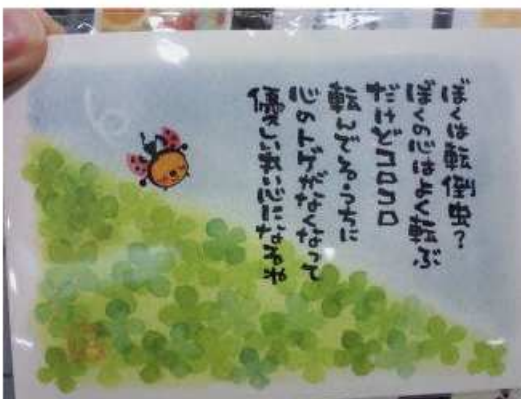 ぼくは転倒虫?
ぼくの心はよく転ぶ
だけどコロコロ
転んでるうちに
心のトゲがなくなって
優しい丸い心になるね